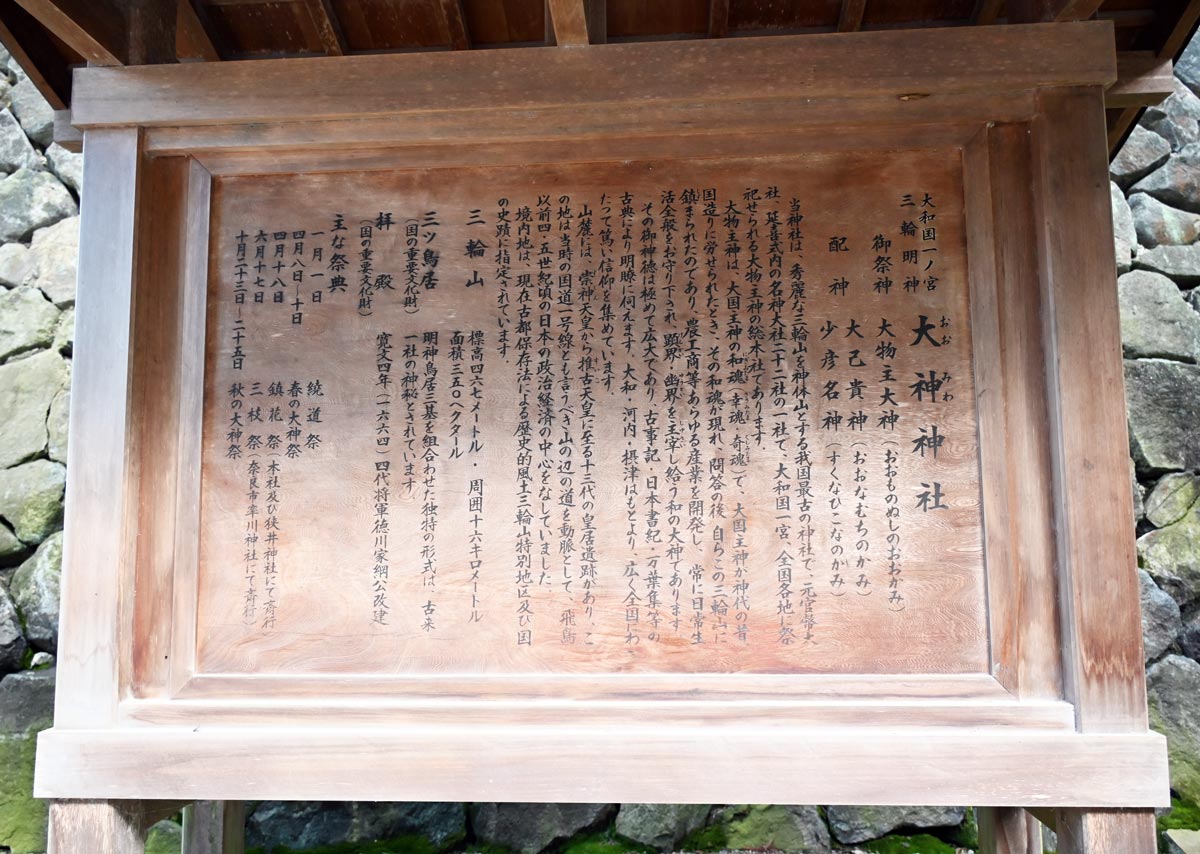 大和国一ノ宮
三輪明神
大神神社
おお みわ
御祭神 大物主大神（おおものぬしのおおかみ）
大己貴神（おおなむちのかみ）
配神 少彦名神（すくなひこなのかみ）
当神社は、秀麗な三輪山を神体山とする我国最古の神社で、元官幣大
社、延喜式内の名神大社二十二社の一社で、大和国一宮、全国各地に祭
祀せられる大物主神の総本社であります。
大物主神は、大国主神の和魂（幸魂、奇魂）で、大国主神が神代の昔
国造りに労せられたとき、その和魂が現れ、問答の後、自らこの三輪山に
鎮まられたのであり、農工商等あらゆる産業を開発し、常に日常生
活全般をお守り下され、顕界・幽界を主宰し給う和の大神であります
その御神徳は極めて広大であり、古事記・日本書紀・万葉集等の
古典により明瞭に伺えます、大和・河内・摂津はもとより、広く全国にわ
たって篤い信仰を集めています。
山麓には、崇神天皇から推古天皇に至る十三代の皇居遺跡があり、こ
の地は当時の国道一号線とも言うべき山の辺の道を動脈として、飛鳥
以前四・五世紀頃の日本の政治経済の中心をなしていました。
境内地は、現在古都保存法による歴史的風土三輪山特別地区及び国
の史蹟に指定されています。
三輪山 標高四六七メートル・周囲十六キロメートル
面積三五〇ヘクタール
三ツ鳥居 明神鳥居三基を組合わせた独特の形式は、古来
（国の重要文化財） 一社の神秘とされています
拝殿 寛文四年（一六六四）四代将軍徳川家綱公改建
（国の重要文化財）
主な祭典
一月一日 繞道祭
四月八日—十日 春の大神祭
四月十八日 鎮花祭（本社及び狭井神社にて斉行）
六月十七日 三枝祭（奈良市率川神社にて斉行）
十月二十三日—二十五日 秋の大神祭